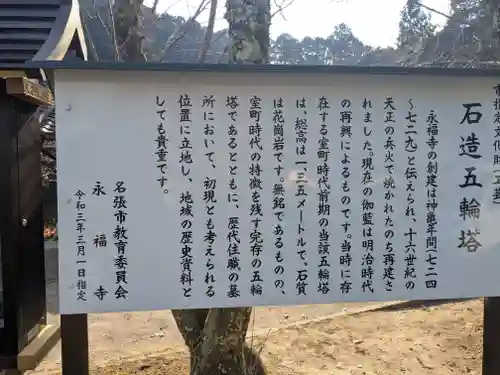 市指定文化財(工芸)
石造五輪塔
永福寺の創建は神亀年間(七二四
～七二九)と伝えられ、十六世紀の
天正の兵火で焼かれたのち再建さ
れました。現在の伽藍は明治時代
の再興によるものです。当時に存
在する室町時代前期の当該五輪塔
は、総高は一・三五メートルで、石質
は花崗岩です。無銘であるものの、
室町時代の特徴を残す完存の五輪
塔であるとともに、歴代住職の墓
所において、初現とも考えられる
位置に立地し、地域の歴史資料と
しても貴重です。
名張市教育委員会
永福寺
令和三年三月一日指定